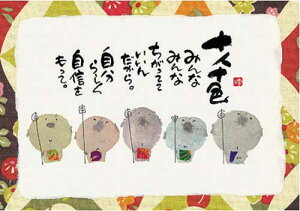 十人十色
みんな
みんな
ちがってて
いいん
だから。
自分
らしく
自信を
もって。